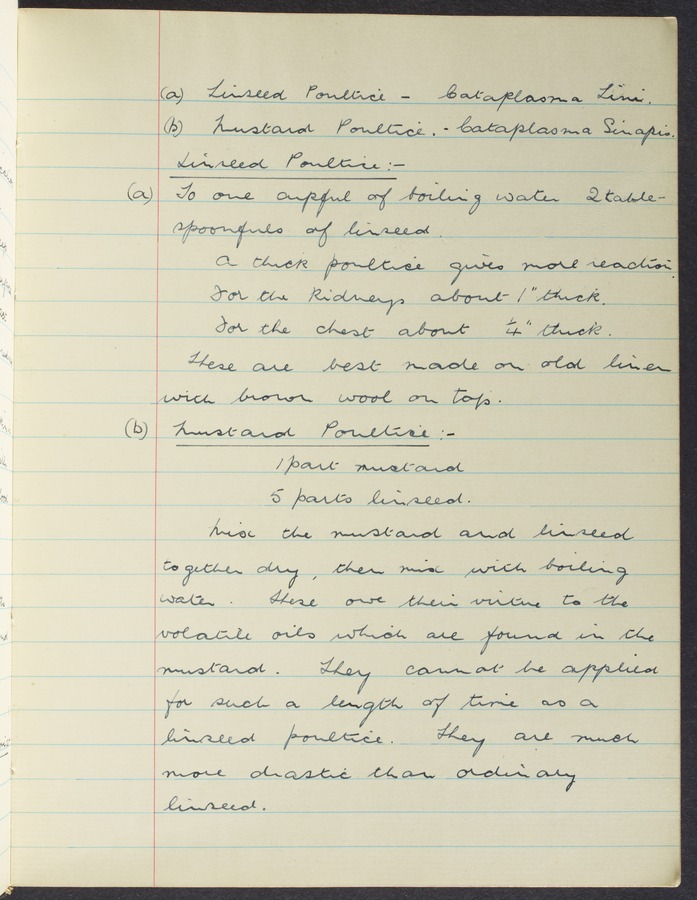 (a) Linseed Poultice - Cataplasma Lini.
(b) Mustard Poultice. - Cataplasma Sinapis.
Linseed Poultice :-
(a) To one cupful of boiling water 2 table-
spoonfuls of linseed.
A thick poultice gives more reaction.
For the kidneys about 1" thick.
For the chest about ¼" thick.
These are best made on old linen
with brown wool on top.
(b) Mustard Poultice :-
1 part mustard
5 parts linseed.
Mix the mustard and linseed
together dry, then mix with boiling
water. These owe their virtue to the
volatile oils which are found in the
mustard. They cannot be applied
for such a length of time as a
linseed poultice. They are much
more drastic than ordinary
linseed.